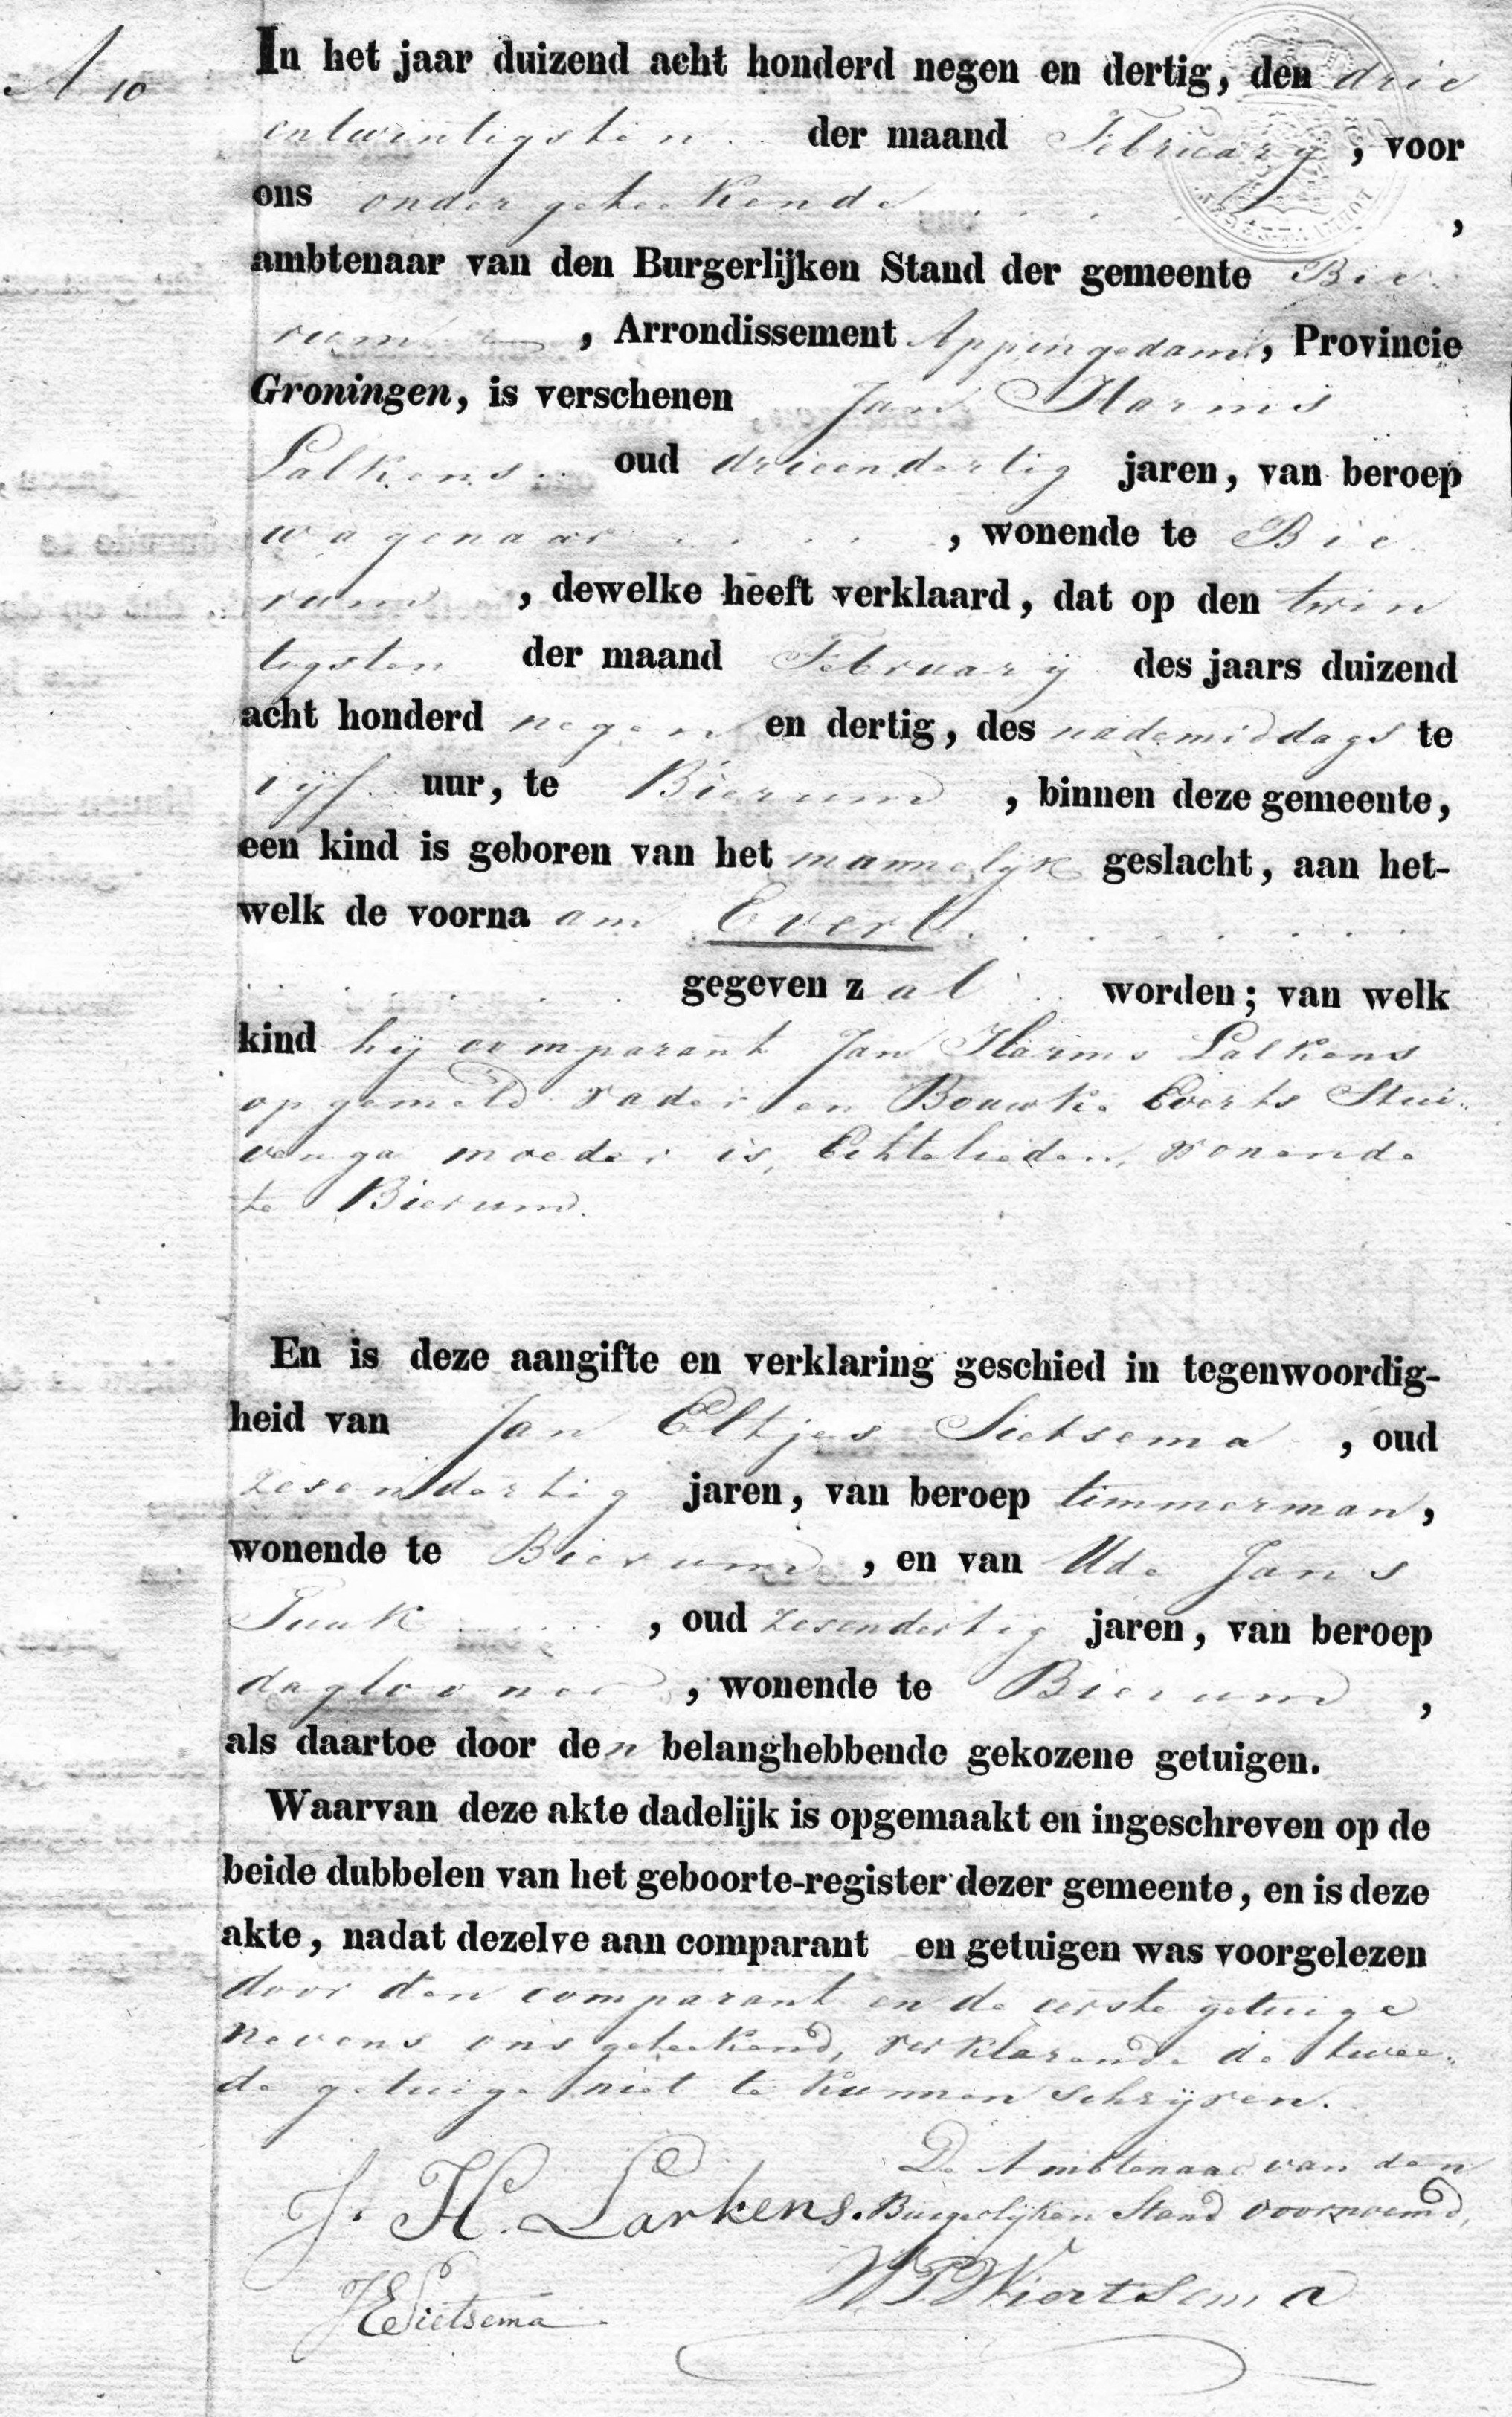 A 10
In het jaar duizend acht honderd negen en dertig, den drie
entwintigsten der maand February, voor
ons ondergeteekende ,
ambtenaar van den Burgerlijken Stand der gemeente Bie
rum , Arrondissement Appingedam, Provincie
Groningen, is verschenen Jan Harms
Lalkens oud drieendertig jaren, van beroep
wagenaar , wonende te Bie
rum , dewelke heeft verklaard, dat op den twin
tigsten der maand Februarij des jaars duizend
acht honderd negen en dertig, des nademiddags te
vijf uur, te Bierum , binnen deze gemeente,
een kind is geboren van het mannelijk geslacht, aan het-
welk de voorna am Evert
gegeven zal worden; van welk
kind hij comparant Jan Harms Lalkens
opgemeld vader en Bouwke Everts Stui-
venga moeder is, Echtelieden, wonende
te Bierum.
En is deze aangifte en verklaring geschied in tegenwoordig-
heid van Jan Eltjes Sietsema , oud
zesendertig jaren, van beroep timmerman,
wonende te Bierum , en van Ude Jans
, oud zesendertig jaren, van beroep
daglooner , wonende te Bierum ,
als daartoe door den belanghebbende gekozene getuigen.
Waarvan deze akte dadelijk is opgemaakt en ingeschreven op de
beide dubbelen van het geboorte-register dezer gemeente, en is deze
akte, nadat dezelve aan comparant en getuigen was voorgelezen
door den comparant en de eerste getuige
nevens ons geteekend, verklarende de twee-
de getuige niet te kunnen schrijven.
De Ambtenaar van den
J. H. Larkens. Burgerlijken Stand voornoemd,
JESietsema WPWiertsema